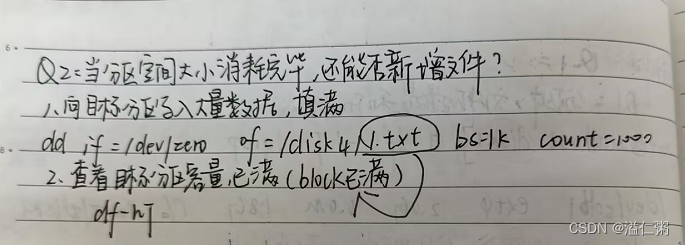 Q2:当分区空间大小消耗完毕,还能否新增文件?
1、向目标分区写入大量数据,填满
dd if=/dev/zero of=/disk4/1.txt bs=1k count=1000
2、查看目标分区容量,已满(block已满)
df-hT
CSDN @溢仁粥